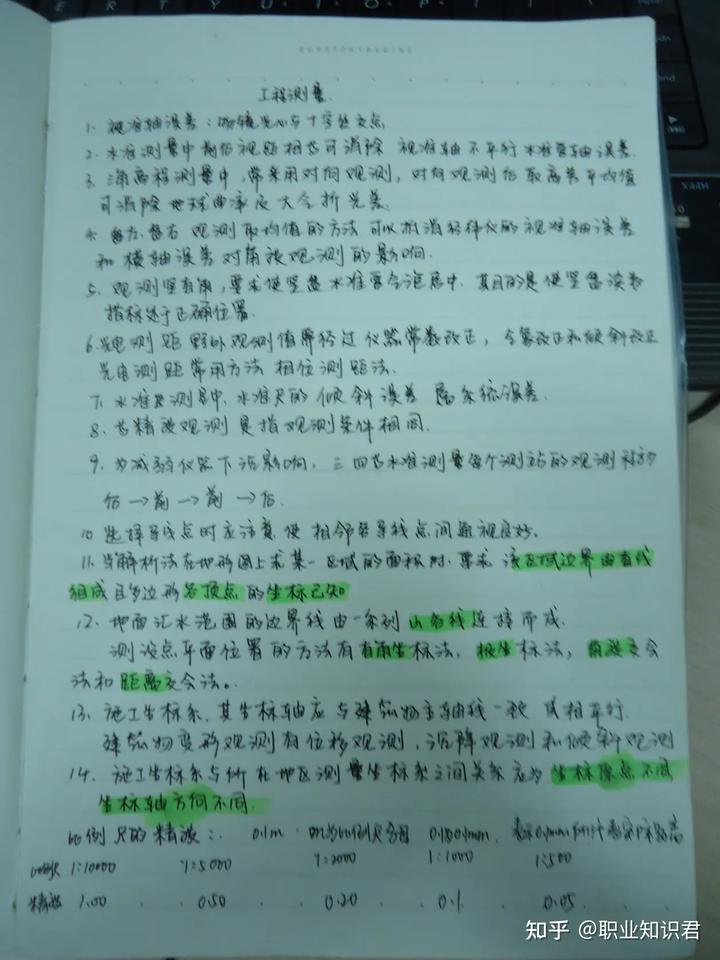 工程测量.
1. 视准轴误差:物镜光心与十字丝交点
2. 水准测量中前后视距相等可消除 视准轴不平行水准管轴误差.
3. 三角高程测量中,常采用对向观测,对向观测后取高差平均值
可消除地球曲率及大气折光差.
4. 盘左.盘右 观测取均值的方法可以抵消经纬仪的视准轴误差
和横轴误差对角度观测的影响.
5. 观测竖直角,要求使竖盘水准管气泡居中.其目的是使竖盘读数
指标处于正确位置.
6. 光电测距野外观测值需经过仪器常数改正,气象改正和倾斜改正
光电测距常用方法 相位测距法.
7. 水准测量中.水准尺的倾斜误差 属系统误差.
8. 等精度观测是指观测条件相同.
9. 为减弱仪器下沉影响,三四等水准测量每个测站的观测
后→前→前→后.
10 选择导线点时应注意使相邻导线点间通视良好.
11. 当解析法在地形图上求某一区域的面积时.要求 该区域边界由直线
组成且多边形各顶点的坐标已知
12. 地面汇水范围的边界线由一系列山脊线连接而成.
测设点平面位置的方法有直角坐标法,极坐标法,角度交会
法和距离交会法。.
13. 施工坐标系,其坐标轴应与建筑物主轴线一致或相平行.
建筑物变形观测有位移观测,沉降观测和倾斜观测
14. 施工坐标系与所在地区测量坐标系之间关系应为坐标原点不同
坐标轴方向不同.
比例尺的精度: 0.1m. 比例尺分母 0.1mm
比例尺 1:10000 1:5000 1:2000 1:1000 1:500
精度 1.00 0.50 0.20 0.1 0.05
知乎 @职业知识君